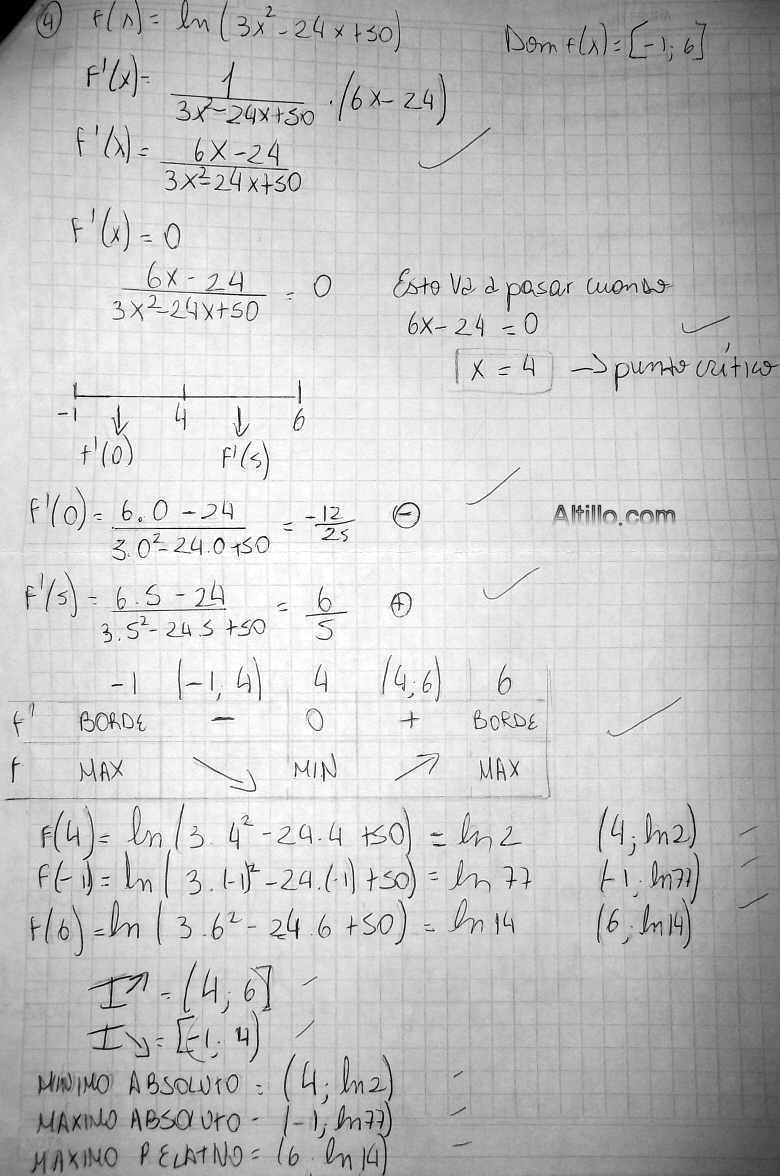 ④ f(x) = ln(3x² - 24x + 50)    Dom f(x) = [-1; 6]
f'(x) = 1/(3x² - 24x + 50) · (6x - 24)
f'(x) = (6x - 24)/(3x² - 24x + 50)
f'(x) = 0
(6x - 24)/(3x² - 24x + 50) = 0    Esto va a pasar cuando
6x - 24 = 0
x = 4 → punto crítico
-1    4    6
f'(0)    f'(5)
f'(0) = (6.0 - 24)/(3.0² - 24.0 + 50) = -12/25 ⊖
Altillo.com
f'(5) = (6.5 - 24)/(3.5² - 24.5 + 50) = 6/5 ⊕
-1    (-1, 4)    4    (4; 6)    6
f'    BORDE    -    0    +    BORDE
f    MAX    ↘    MIN    ↗    MAX
f(4) = ln(3.4² - 24.4 + 50) = ln 2    (4; ln2)
f(-1) = ln(3.(-1)² - 24.(-1) + 50) = ln 77    (-1; ln77)
f(6) = ln(3.6² - 24.6 + 50) = ln 14    (6; ln14)
I↗ = (4; 6]
I↘ = [-1; 4)
MINIMO ABSOLUTO = (4; ln2)
MAXIMO ABSOLUTO = (-1; ln77)
MAXIMO RELATIVO = (6; ln14)